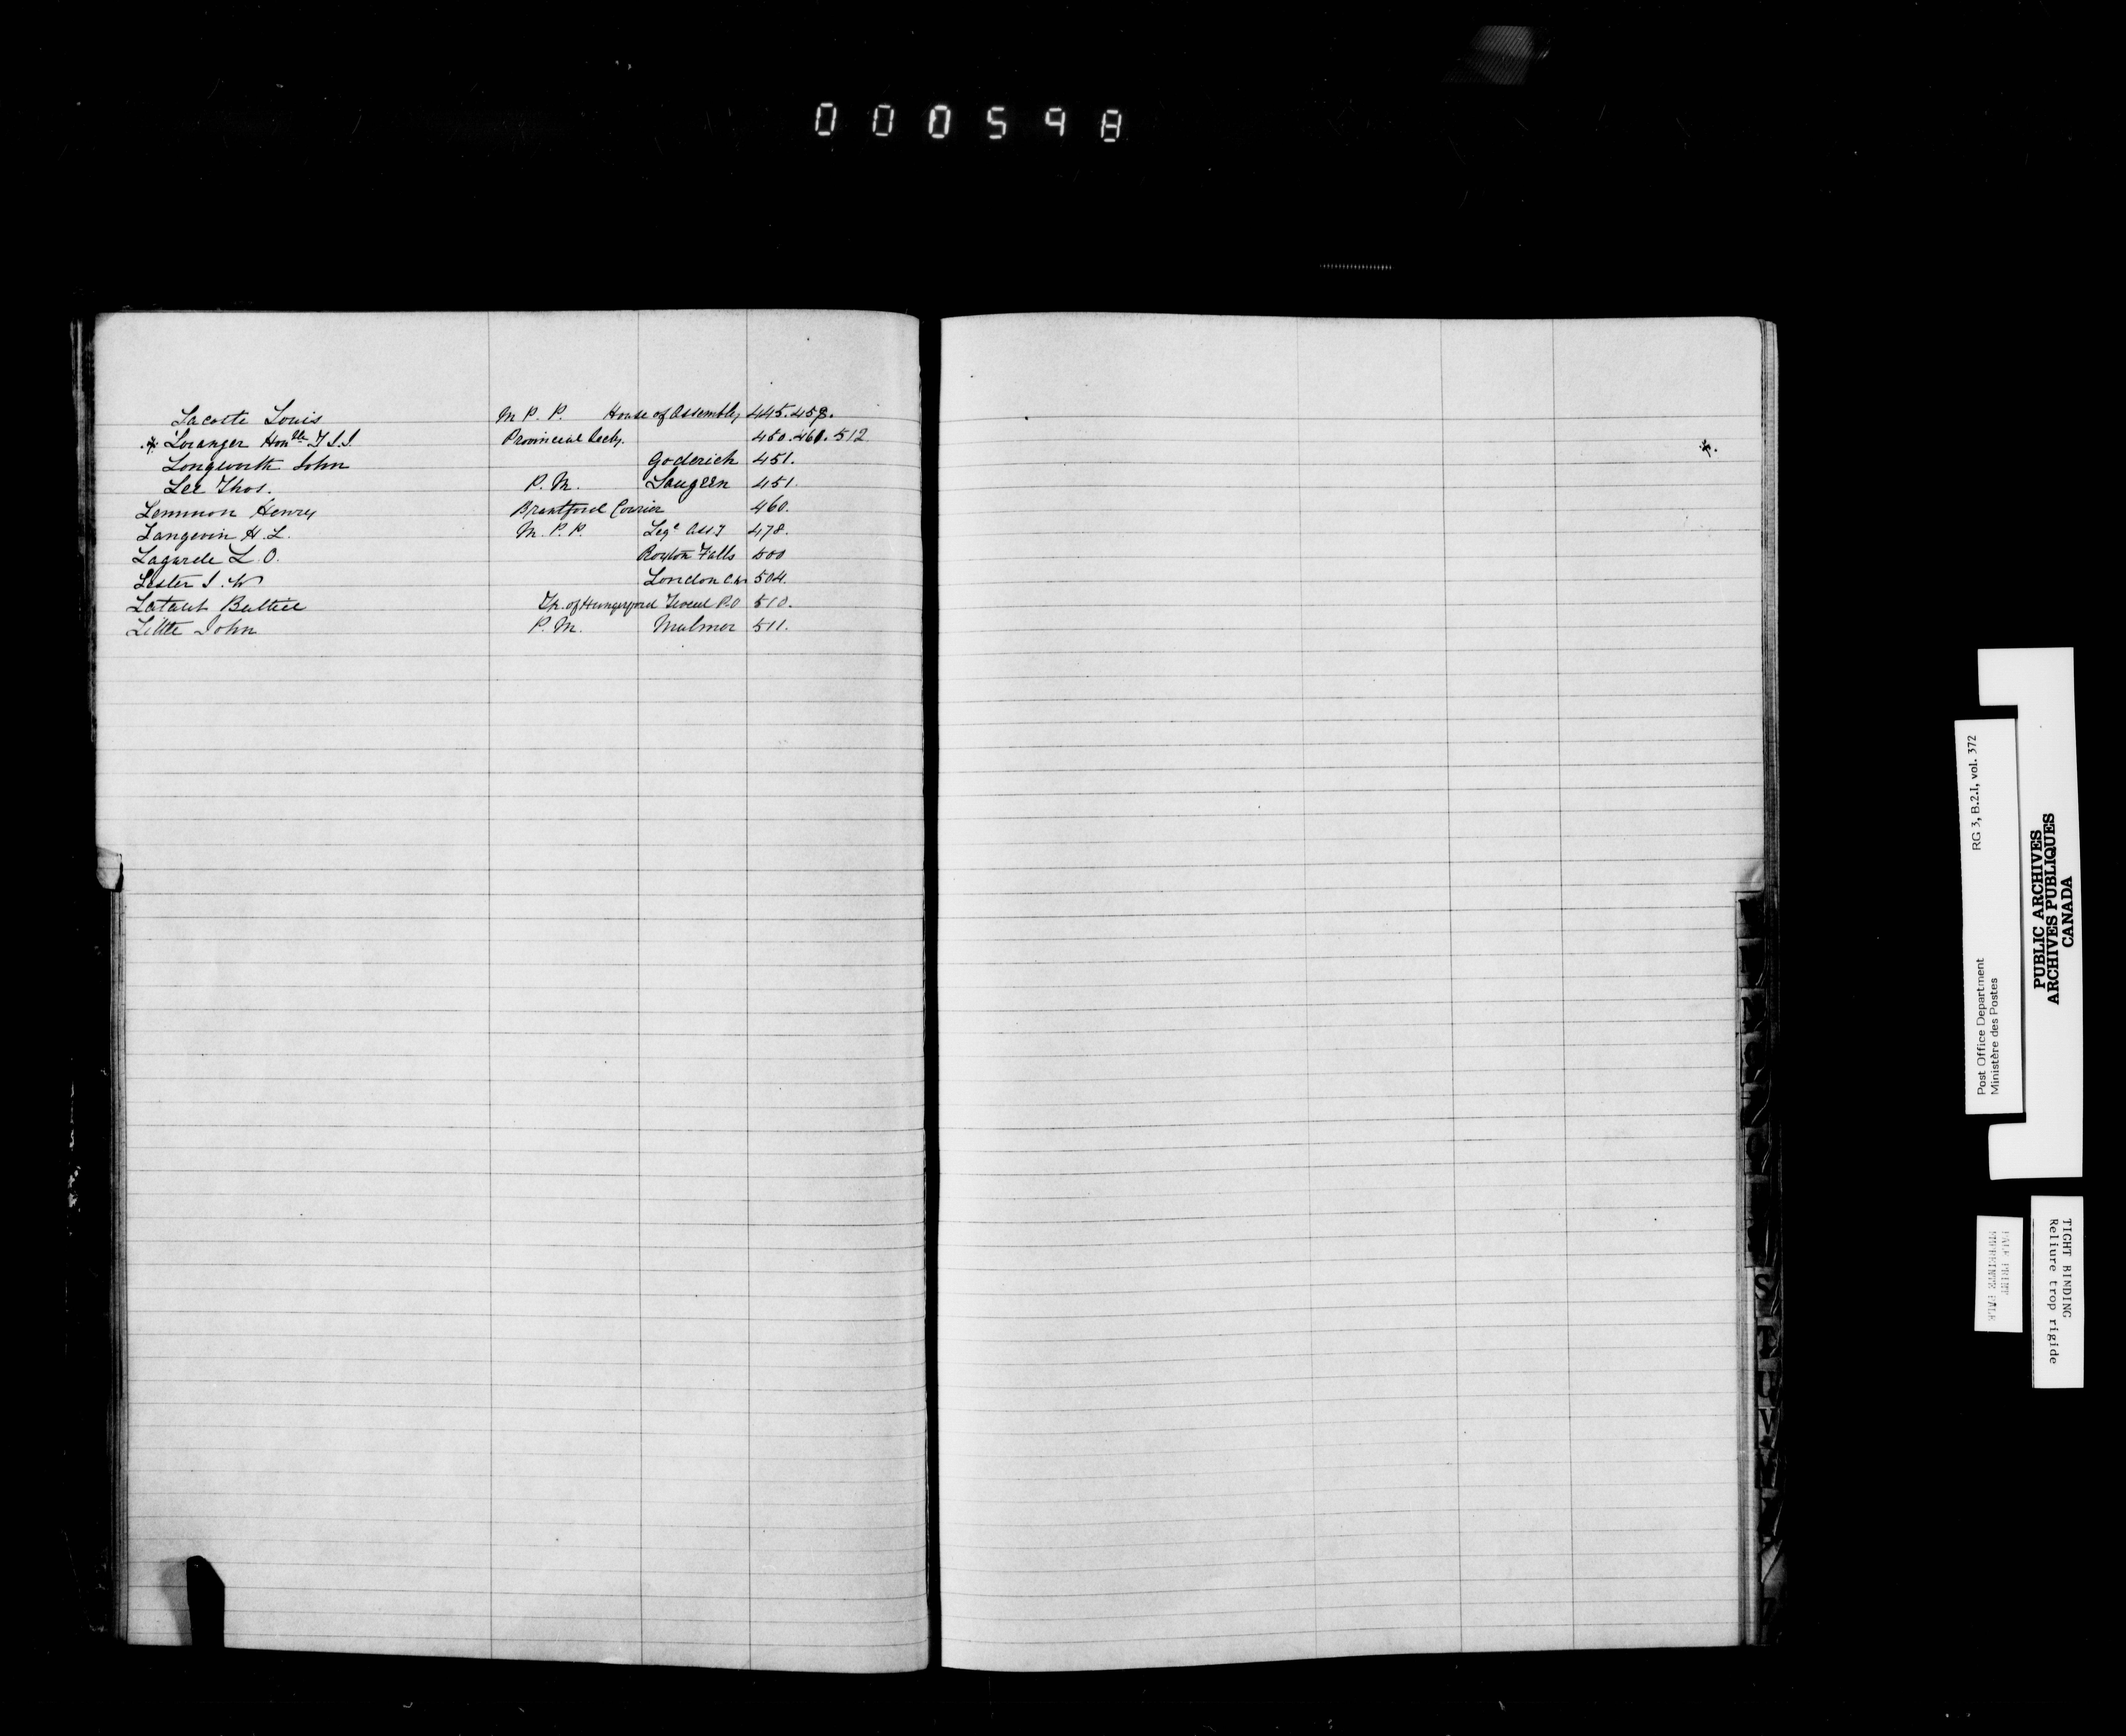 000598
Lacoste Louis M. P. P. House of Assembly 445. 458.
* Loranger Honble T J J Provincial Secty. 450. 461. 512
Longworth John Goderich 451.
Lee Thos. P. M. Saugeen 451.
Lemmon Henry Brantford Courier 460.
Langevin H. L. M. P. P. Lege Assy 478.
Lagarde L. O. Roxton Falls 500
Lester J. W London C.W 504.
Tp. of Hungerford Tweed P.O 510.
Little John P. M. Mulmer 511.
RG 3, B.2.1, vol. 372
Post Office Department
Ministère des Postes
PUBLIC ARCHIVES
ARCHIVES PUBLIQUES
CANADA
TIGHT BINDING
Reliure trop rigide
PALE PRINT
S
T
U
V
W